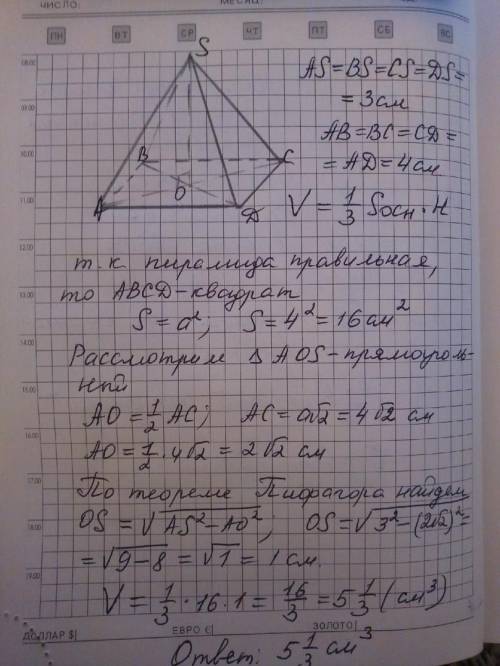 ЧИСЛО:
МЕСЯЦ:
ПН ВТ СР ЧТ ПТ СБ ВС
08.00
09.00
10.00
11.00
12.00
13.00
14.00
15.00
16.00
17.00
18.00
19.00
S
B
C
O
A
D
AS=BS=CS=DS=
= 3см
AB=BC=CD=
=AD=4см
V = 1/3 Sосн·H
т.к. пирамида правильная,
то ABCD-квадрат
S=a²; S=4²=16см²
Рассмотрим ΔAOS-прямоуголь-
ный
AO=1/2 AC; AC=a√2=4√2 см
AO=1/2·4√2=2√2 см
По теореме Пифагора найдем
OS=√(AS²-AO²); OS=√(3²-(2√2)²)=
=√(9-8)=√1=1см.
V=1/3·16·1=16/3=5 1/3 (см³)
ДОЛЛАР $| ЕВРО €| ЗОЛОТО|
Ответ: 5 1/3 см³